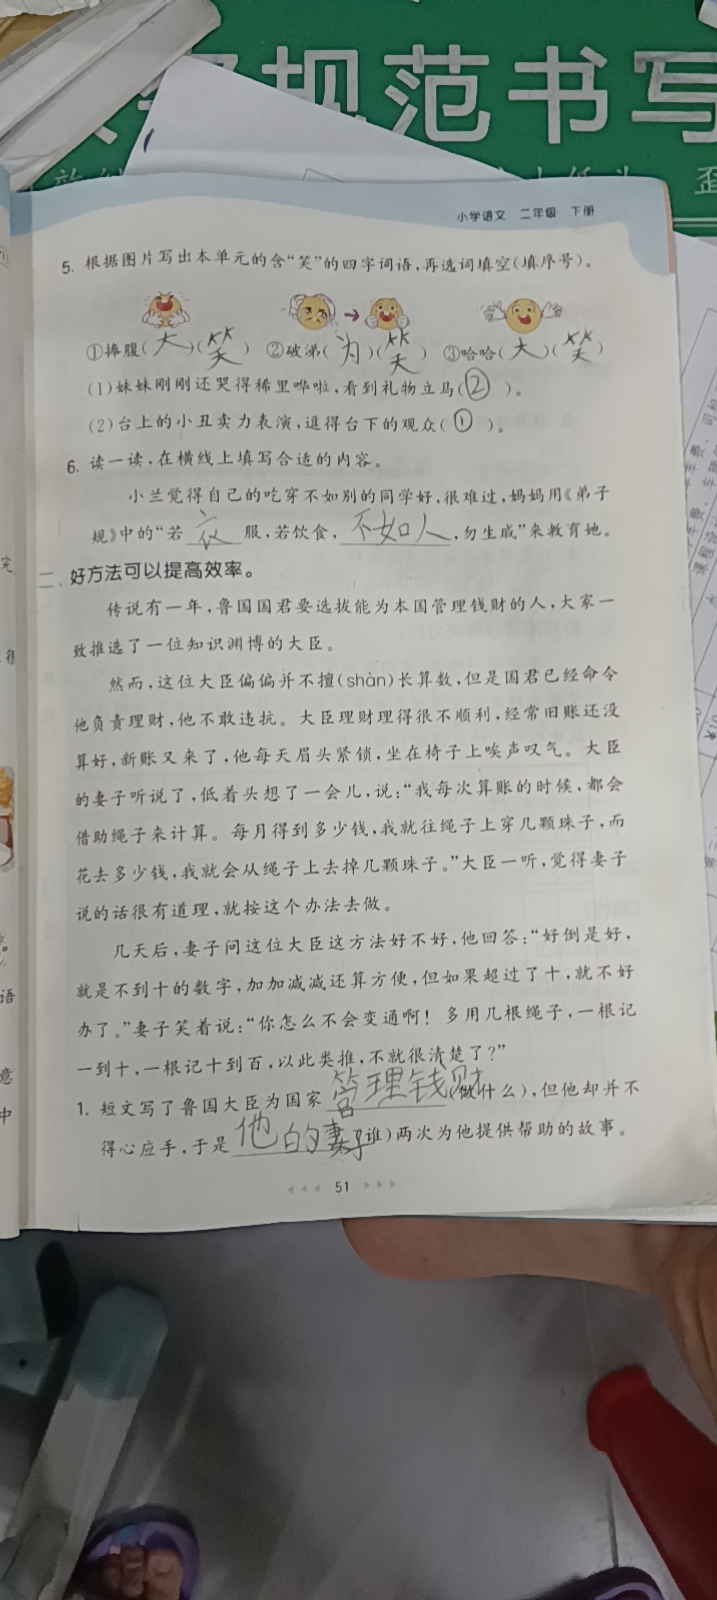 规范书写
小学语文 二年级 下册
5. 根据图片写出本单元的含“笑”的四字词语,再选词填空(填序号)。
①捧腹(大)(笑) ②破涕(为)(笑) ③哈哈(大)(笑)
(1)妹妹刚刚还哭得稀里哗啦,看到礼物立马(②)。
(2)台上的小丑卖力表演,逗得台下的观众(①)。
6. 读一读,在横线上填写合适的内容。
小兰觉得自己的吃穿不如别的同学好,很难过,妈妈用《弟子
规》中的“若衣服,若饮食,不如人,勿生戚”来教育她。
二、好方法可以提高效率。
传说有一年,鲁国国君要选拔能为本国管理钱财的人,大家一
致推选了一位知识渊博的大臣。
然而,这位大臣偏偏并不擅(shàn)长算数,但是国君已经命令
他负责理财,他不敢违抗。大臣理财理得很不顺利,经常旧账还没
算好,新账又来了,他每天眉头紧锁,坐在椅子上唉声叹气。大臣
的妻子听说了,低着头想了一会儿,说:“我每次算账的时候,都会
借助绳子来计算。每月得到多少钱,我就往绳子上穿几颗珠子,而
花去多少钱,我就会从绳子上去掉几颗珠子。”大臣一听,觉得妻子
说的话很有道理,就按这个办法去做。
几天后,妻子问这位大臣这方法好不好,他回答:“好倒是好,
就是不到十的数字,加加减减还算方便,但如果超过了十,就不好
办了。”妻子笑着说:“你怎么不会变通啊!多用几根绳子,一根记
一到十,一根记十到百,以此类推,不就很清楚了?”
1. 短文写了鲁国大臣为国家管理钱财(做什么),但他却并不
得心应手,于是他的妻子(谁)两次为他提供帮助的故事。
51
完
语
意
中